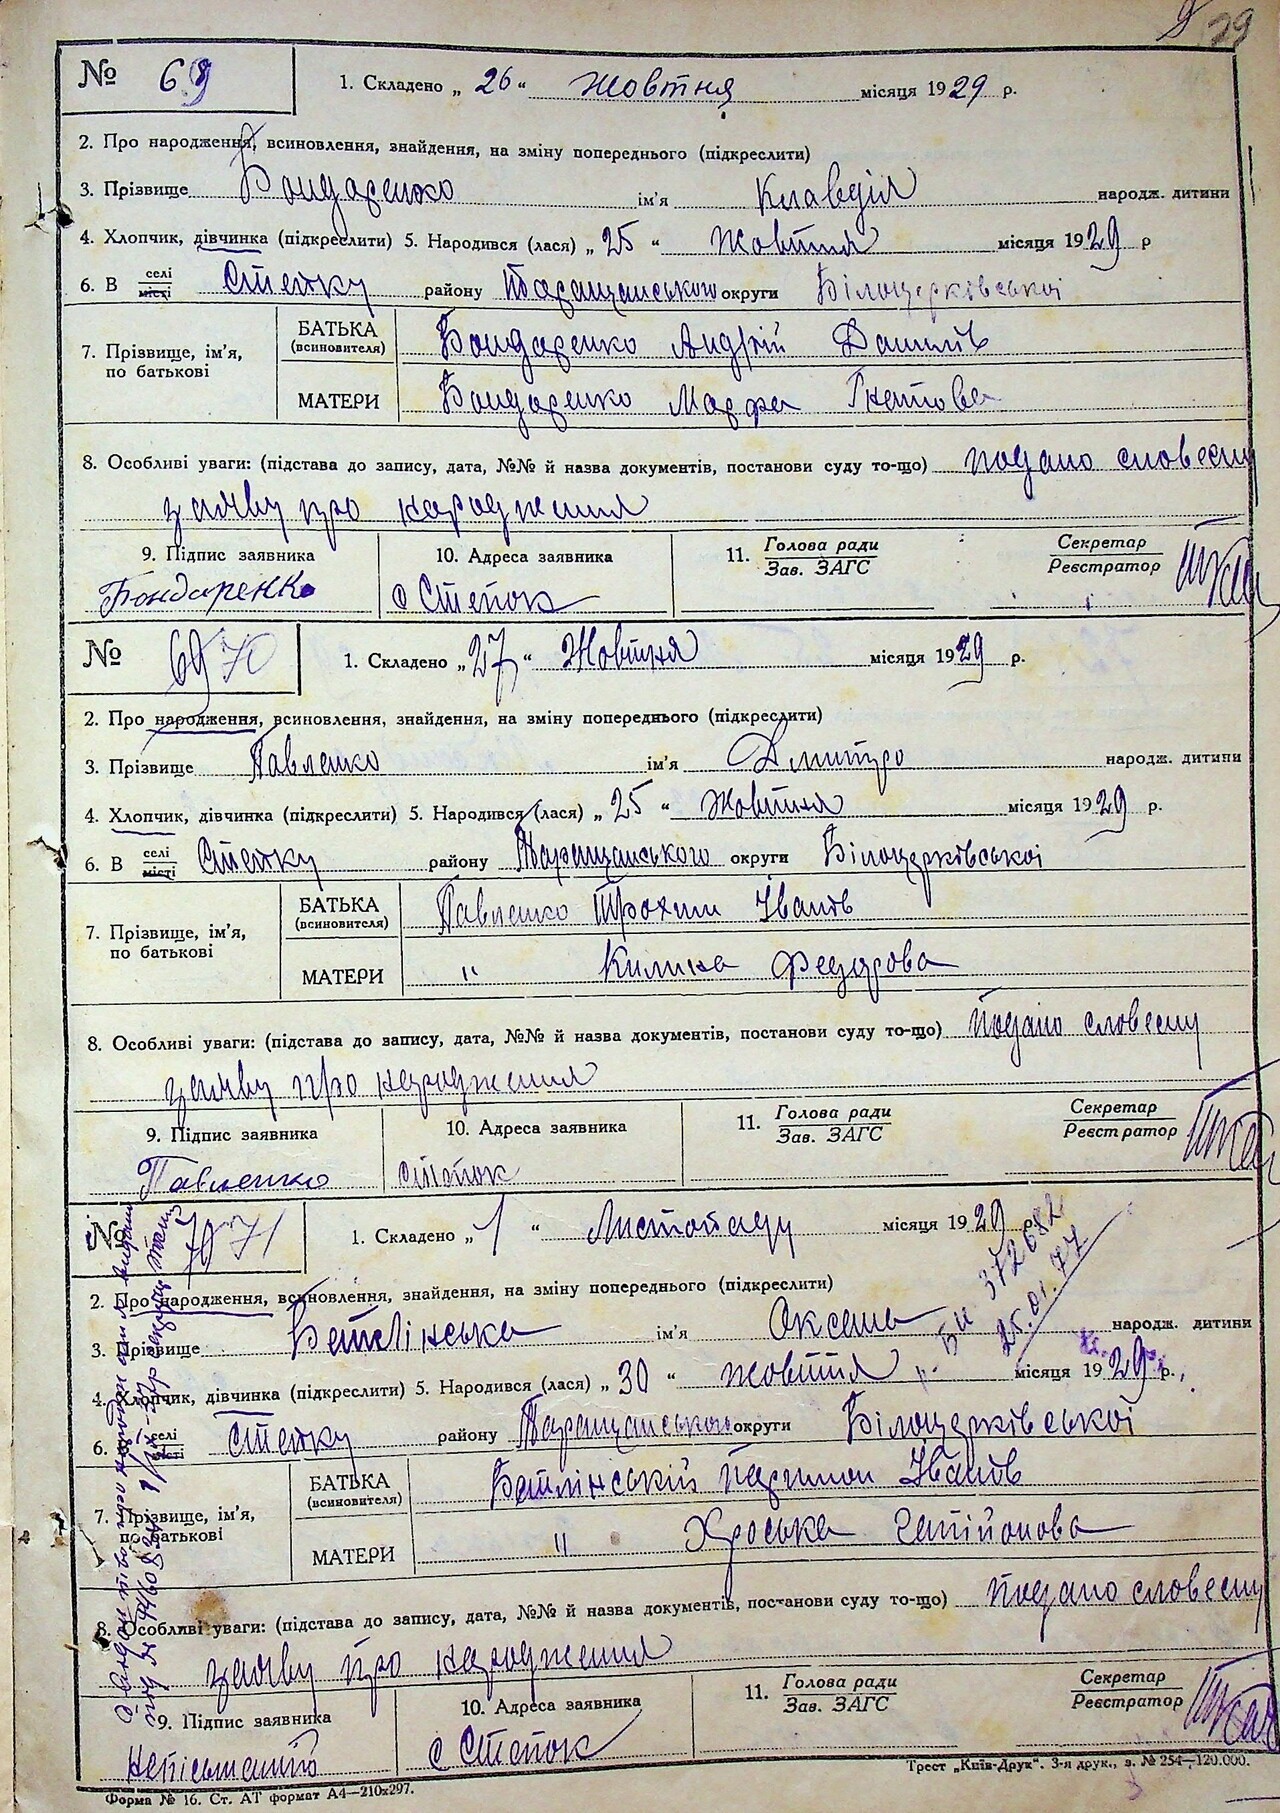 29
№ 69 1. Складено „ 26 “ Жовтня місяця 1929 р.
2. Про народження, всиновлення, знайдення, на зміну попереднього (підкреслити)
3. Прізвище Бондаренко ім'я Клавдія народж. дитини
4. Хлопчик, дівчинка (підкреслити) 5. Народився (лася) „ 25 “ Жовтня місяця 1929 р
6. В селі місті Степку району Таращанського округи Білоцерківської
7. Прізвище, ім'я, по батькові
БАТЬКА (всиновителя) Бондаренко Андрій Данилів
МАТЕРИ Бондаренко Марфа Гнатова
8. Особливі уваги: (підстава до запису, дата, №№ й назва документів, постанови суду то-що) подано словесну
заяву про народження
9. Підпис заявника 10. Адреса заявника 11. Голова ради Зав. ЗАГС Секретар Реєстратор
Бондаренко с Степок
№ 69 70 1. Складено „ 27 “ Жовтня місяця 1929 р.
2. Про народження, всиновлення, знайдення, на зміну попереднього (підкреслити)
3. Прізвище Павленко ім'я Дмитро народж. дитини
4. Хлопчик, дівчинка (підкреслити) 5. Народився (лася) „ 25 “ Жовтня місяця 1929 р.
6. В селі місті Степку району Таращанського округи Білоцерківської
7. Прізвище, ім'я, по батькові
БАТЬКА (всиновителя) Павленко Трохим Іванів
МАТЕРИ " Килина Федорова
8. Особливі уваги: (підстава до запису, дата, №№ й назва документів, постанови суду то-що) Подано словесну
заяву про народження
9. Підпис заявника 10. Адреса заявника 11. Голова ради Зав. ЗАГС Секретар Реєстратор
Павленко Степок
№ 70 71 1. Складено „ 1 “ Листопаду місяця 1929 р.
372682
25.01.77
2. Про народження, всиновлення, знайдення, на зміну попереднього (підкреслити)
3. Прізвище ім'я Оксана народж. дитини
4. Хлопчик, дівчинка (підкреслити) 5. Народився (лася) „ 30 “ жовтня місяця 1929 р.
6. В селі місті Степку району Таращанського округи Білоцерківської
7. Прізвище, ім'я, по батькові
БАТЬКА (всиновителя) Іванів
МАТЕРИ "
8. Особливі уваги: (підстава до запису, дата, №№ й назва документів, постанови суду то-що) подано словесну
заяву про народження
9. Підпис заявника 10. Адреса заявника 11. Голова ради Зав. ЗАГС Секретар Реєстратор
с Степок
Форма № 16. Ст. АТ формат А4—210х297.
Трест „Київ-Друк“. 3-я друк., з. № 254—120.000.